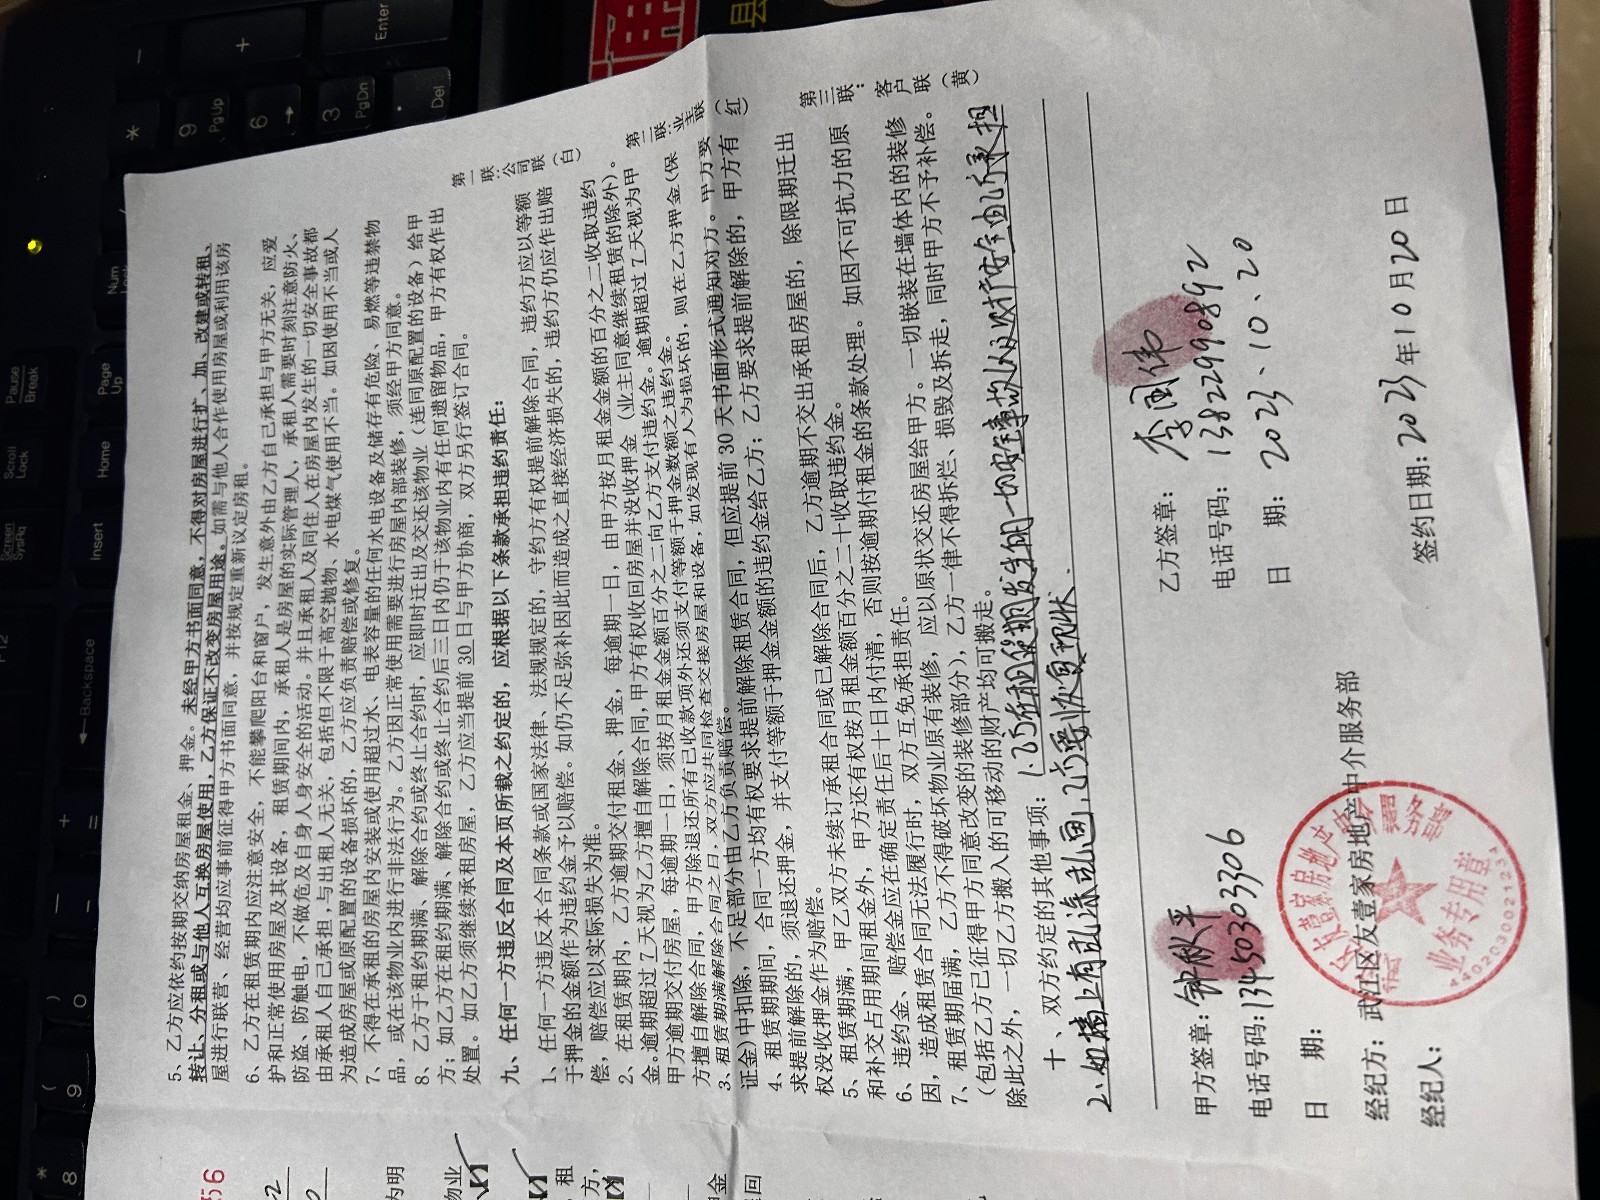 5、乙方应依约按期交纳房屋租金、押金。未经甲方书面同意，不得对房屋进行扩、加、改建或转租、
转让、分租或与他人互换房屋使用，乙方保证不改变房屋用途。如需与他人合作使用房屋或利用该房
屋进行联营、经营均应事前征得甲方书面同意，并按规定重新议定房租。
6、乙方在租赁期内应注意安全，不能攀爬阳台和窗户，发生意外由乙方自己承担与甲方无关，应爱
护和正常使用房屋及其设备，租赁期间内，承租人是房屋的实际管理人，承租人需要时刻注意防火、
防盗、防触电，不做危及自身人身安全的活动。并且承租人及同住人在房屋内发生的一切安全事故都
由承租人自己承担，与出租人无关，包括但不限于高空抛物、水电煤气使用不当。如因使用不当或人
为造成房屋或原配置的设备损坏的，乙方应负责赔偿或修复。
7、不得在承租的房屋内安装或使用超过水、电表容量的任何水电设备及储存有危险、易燃等违禁物
品，或在该物业内进行非法行为。乙方因正常使用需要进行房屋内部装修，须经甲方同意。
8、乙方于租约期满、解除合约或终止合约时，应即时迁出及交还该物业（连同原配置的设备）给甲
方；如乙方在租约期满、解除合约或终止合约后三日内仍于该物业内有任何遗留物品，甲方有权作出
处置。如乙方须继续承租房屋，乙方应当提前30日与甲方协商，双方另行签订合同。
九、任何一方违反合同及本页所载之约定的，应根据以下条款承担违约责任：
1、任何一方违反本合同条款或国家法律、法规规定的，守约方有权提前解除合同，违约方应以等额
于押金的金额作为违约金予以赔偿。如仍不足弥补因此而造成之直接经济损失的，违约方仍应作出赔
偿，赔偿应以实际损失为准。
2、在租赁期内，乙方逾期交付租金、押金，每逾期一日，由甲方按月租金金额的百分之二收取违约
金。逾期超过7天视为乙方擅自解除合同，甲方有权收回房屋并没收押金（业主同意继续租赁的除外）。
甲方逾期交付房屋，每逾期一日，须按月租金金额百分之二向乙方支付违约金。逾期超过7天视为甲
方擅自解除合同，甲方除退还所有已收款项外还须支付等额于押金数额之违约金。
3、租赁期满解除合同之日，双方应共同检查交接房屋和设备，如发现有人为损坏的，则在乙方押金（保
证金）中扣除，不足部分由乙方负责赔偿。
4、租赁期期间，合同一方均有权要求提前解除租赁合同，但应提前30天书面形式通知对方。甲方要
求提前解除的，须退还押金，并支付等额于押金金额的违约金给乙方；乙方要求提前解除的，甲方有
权没收押金作为赔偿。
5、租赁期满，甲乙双方未续订承租合同或已解除合同后，乙方逾期不交出承租房屋的，除限期迁出
和补交占用期间租金外，甲方还有权按月租金额百分之二十收取违约金。
6、违约金、赔偿金应在确定责任后十日内付清，否则按逾期付租金的条款处理。如因不可抗力的原
因，造成租赁合同无法履行时，双方互免承担责任。
7、租赁期届满，乙方不得破坏物业原有装修，应以原状交还房屋给甲方。一切嵌装在墙体内的装修
（包括乙方已征得甲方同意改变的装修部分），乙方一律不得拆烂、损毁及拆走，同时甲方不予补偿。
除此之外，一切乙方搬入的可移动的财产均可搬走。
十、双方约定的其他事项：1.乙方在租赁期发生的一切安全事故人身财产安全由乙方承担
2、如墙上有乱涂乱画,乙方要恢复现状.
甲方签章：钟秋平
电话号码：13450303306
日 期：
经纪方：武江区友壹家房地产中介服务部
经纪人：
乙方签章：李闯伟
电话号码：13822990892
日 期：2023、10、20
签约日期：2023年10月20日
第一联：公司联（白）
第二联：业主联（红）
第三联：客户联（黄）
武江区友壹家房地产中介服务部
业务专用章
4402030021234
56
内明
物业
租
方，
金
回
Enter
+
-
*
9
PgUp
6
3
PgDn
Del
Num
Pause
Break
Page
Up
Scroll
Lock
Home
Screen
SysRq
Insert
F12
Backspace
+
=
-
)
0
(
9
*
8